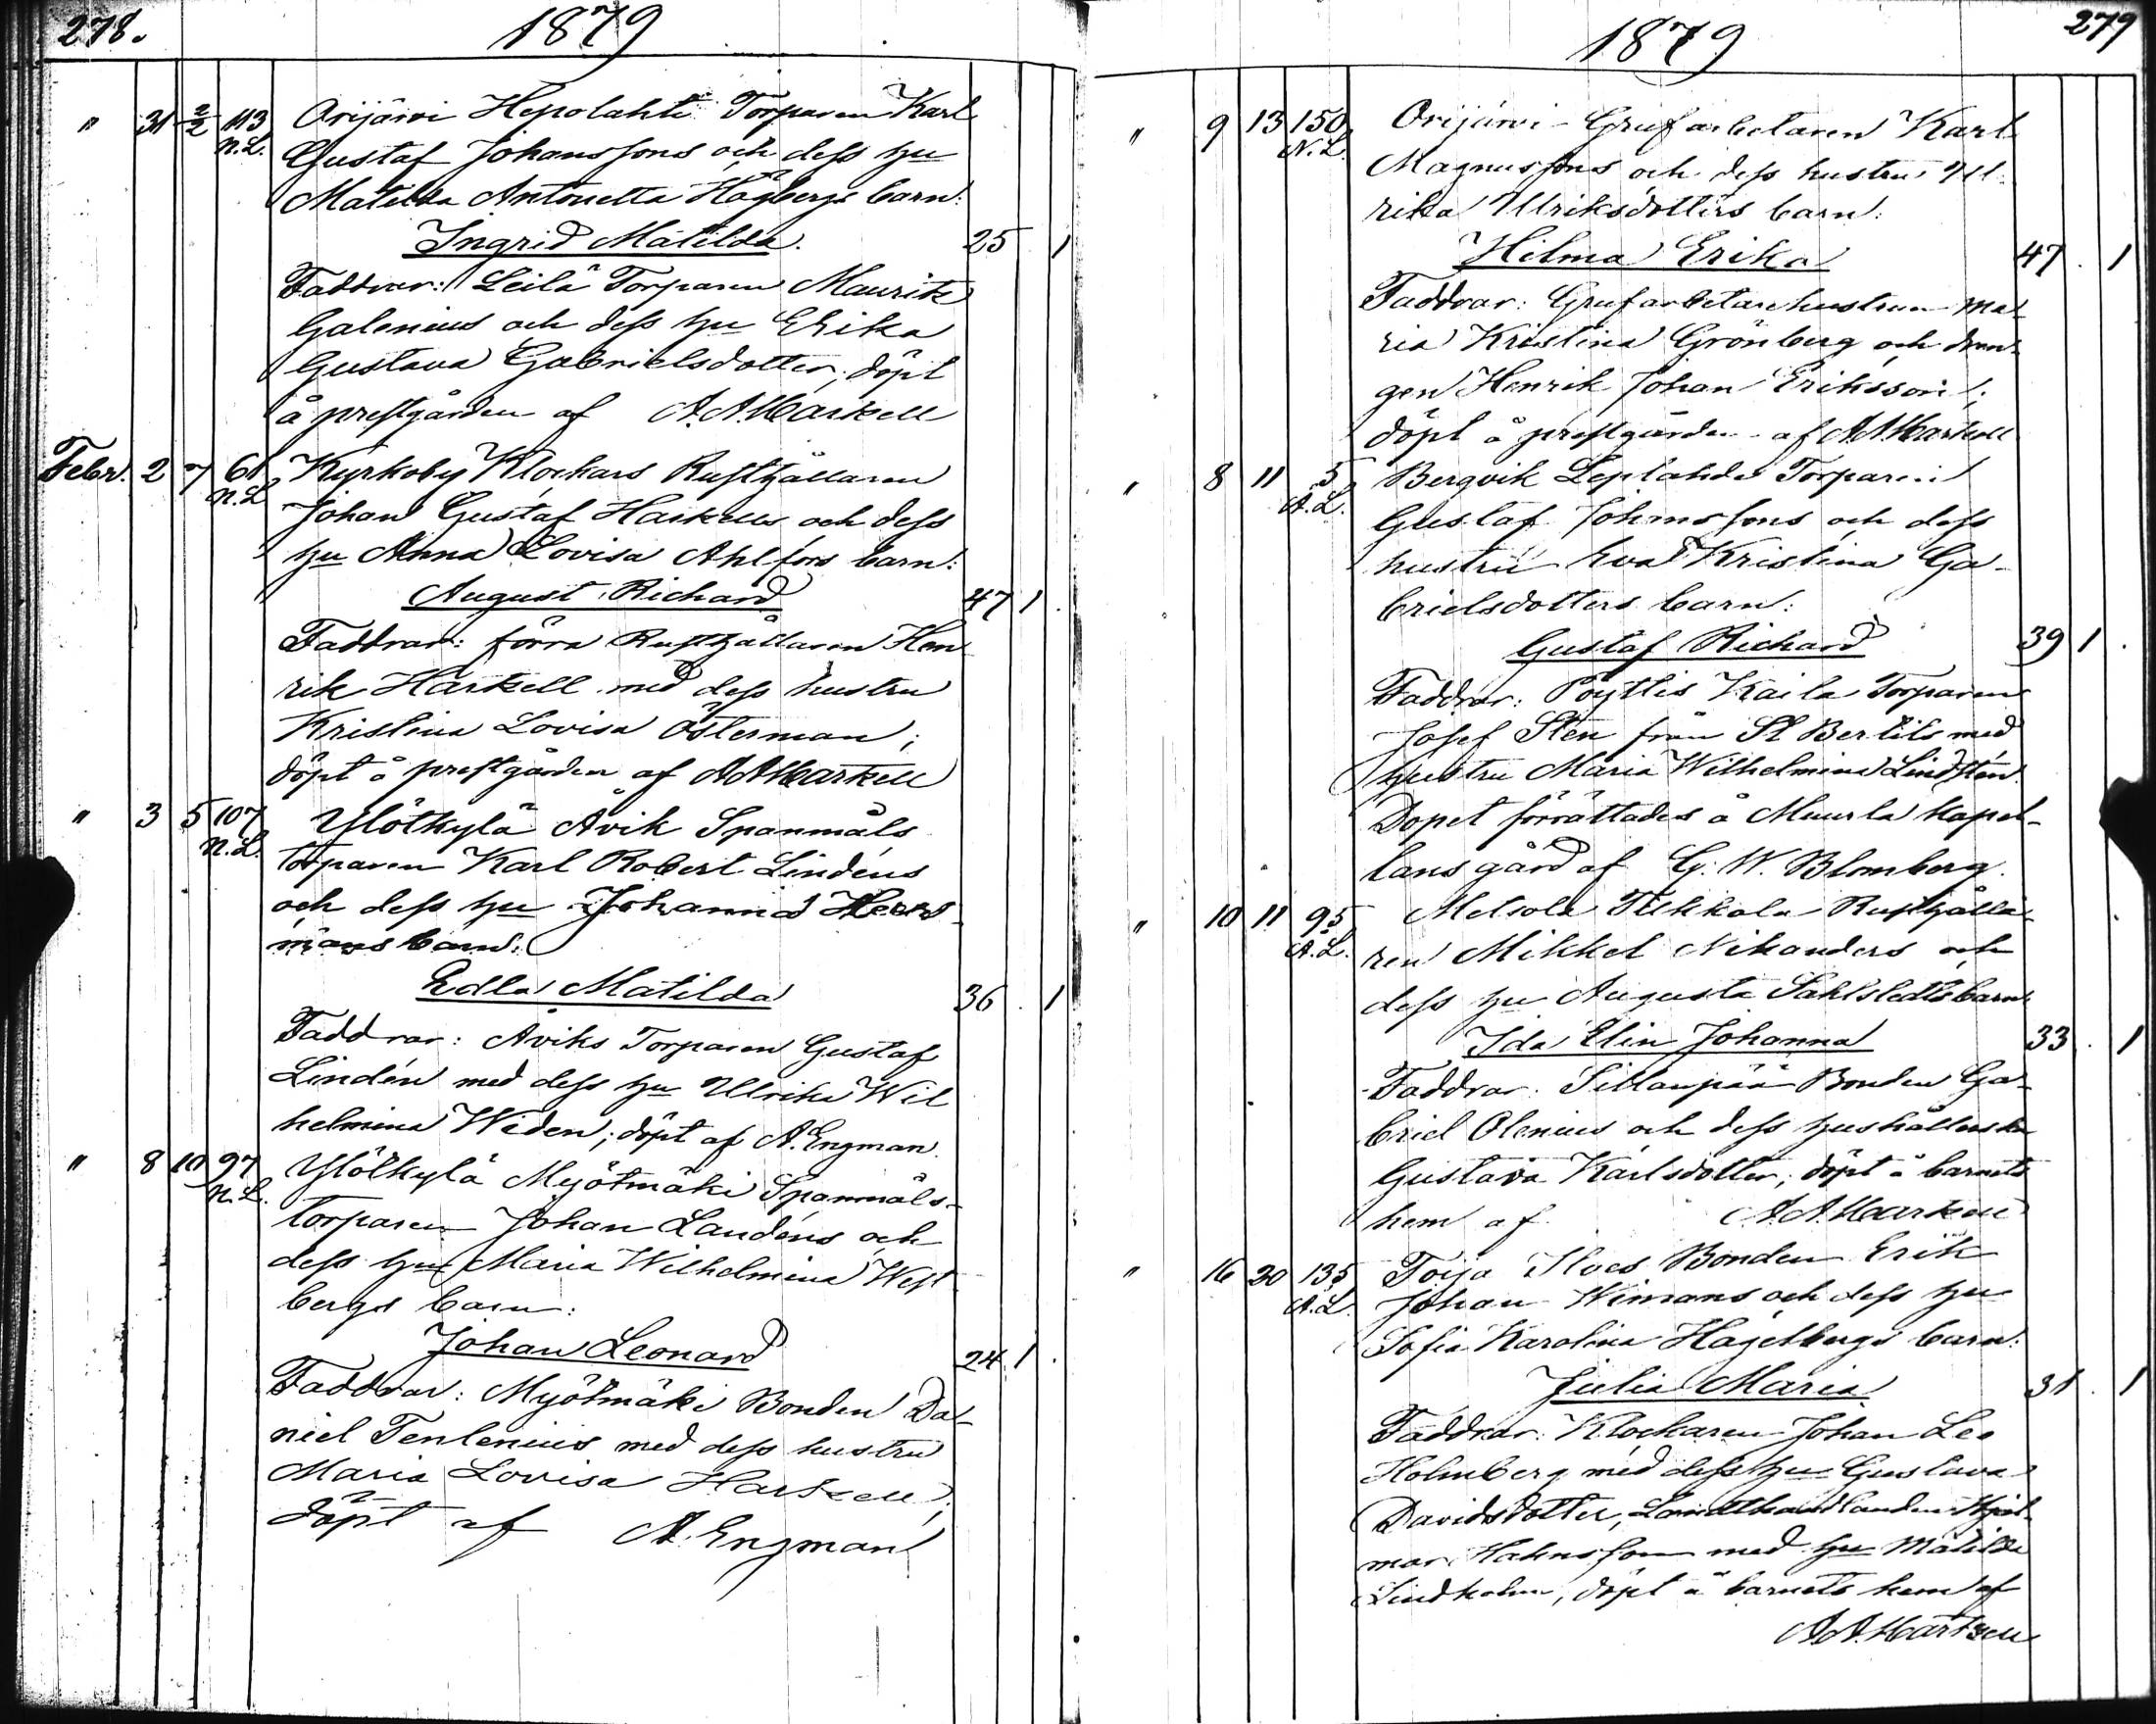 278.
1879
" 31 2/2 113 Orijärvi Hepolahti Torparen Karl
N.L. Gustaf Johanssons och dess hu
Matilda Antonetta Högbergs barn:
Ingrid Matilda. 25 1
Faddrar: Leilä Torparen Maurits
Galenius och dess hu Erika
Gustava Gabrielsdotter; döpt
å prestgården af A. A. Harkell
Febr. 2 7 61 Kyrkoby Klockars Rusthållaren
N.L. Johan Gustaf Harkells och dess
hu Anna Lovisa Ahlfors barn:
August Richard 47 1
Faddrar: förra Rusthållaren Hen
rik Harkell med dess hustru
Kristina Lovisa Österman;
döpt å prestgården af A A Harkell
" 3 5 107 Ylötkylä Åvik Spanmåls
N.L. torparen Karl Robert Lindéns
och dess hu Johanna Hers
mans barn:
Edla Matilda 36 1
Faddrar: Åviks Torparen Gustaf
Lindén med dess hu Ulrika Wil
helmina Widen; döpt af A. Engman.
" 8 10 97 Ylötkylä Myötmäki Spanmåls-
N.L. torparen Johan Landéns och
dess hu Maria Wilhelmina West
bergs barn:
Johan Leonard 24 1
Faddrar: Myötmäki Bonden Da-
niel Tenlenius med dess hustru
Maria Lovisa Harkell;
döpt af A. Engman
279
1879
" 9 13 150 Orijärvi Grufarbetaren Karl
N.L. Magnussons och dess hustru Ul
rika Ulriksdotters barn:
Hilma Erika 47 1
Faddrar: Grufarbetarehustrun Ma-
ria Kristina Grönberg och drän-
gen Henrik Johan Eriksson;
döpt å prestgården af A. A. Harkell
" 8 11 5 Bergvik Leplahde Torparen
A.L. Gustaf Johanssons och dess
hustru Eva Kristina Ga-
brielsdotters barn:
Gustaf Richard 39 1
Faddrar: Pöytlis Kaila Torparen
Josef Sten från St Bertils med
hustru Maria Wilhelmina Lindstén.
Dopet förrättades å Muurla kapel-
lans gård af G. W. Blomberg.
" 10 11 95 Metsola Tukkala Rusthålla-
A.L. ren Mikkel Nikanders och
dess hu Augusta Sahlstedts barn
Ida Elin Johanna 33 1
Faddrar: Sillanpää Bonden Ga-
briel Olenius och dess hushållerska
Gustava Karlsdotter; döpt å barnets
hem af A. A. Harkell
" 16 20 135 Toija Ilves Bonden Erik
A.L. Johan Wimans och dess hu
Sofia Karolina Hagelbergs barn:
Julia Maria 31 1
Faddrar: Klockaren Johan Leo
Holmberg med dess hu Gustava
Davidsdotter, Landthandlanden Hjal-
mar Hahnsson med hu Matilda
Lindholm, döpt å barnets hem af
A. A. Harkell